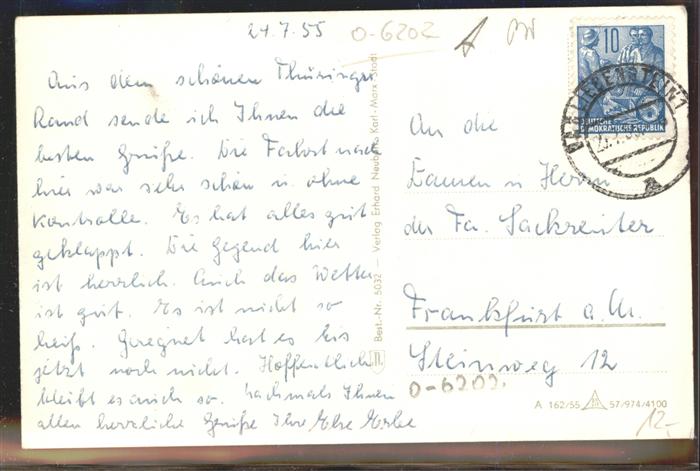 24.7.55
O-6202
Aus dem schönen Thüringer
Land sende ich Ihnen die
besten Grüße. Die Fahrt nach
hier war sehr schön u. ohne
Kontrolle. Es hat alles gut
geklappt. Die Gegend hier
ist herrlich. Auch das Wetter
ist gut. Es ist nicht so
heiß. Geregnet hat es bis
jetzt noch nicht. Hoffentlich
bleibt es auch so. Nochmals Ihnen
allen herzliche Grüße Ihre Else
Best.-Nr. 5032 — Verlag Erhard Neubert, Karl-Marx-Stadt
10
DEUTSCHE
DEMOKRATISCHE REPUBLIK
LIEBENSTEIN
An die
Damen u Herrn
der Fa. Sackreuter
Frankfurt a. M.
Steinweg 12
O-6202.
A 162/55 57/974/4100
12.-